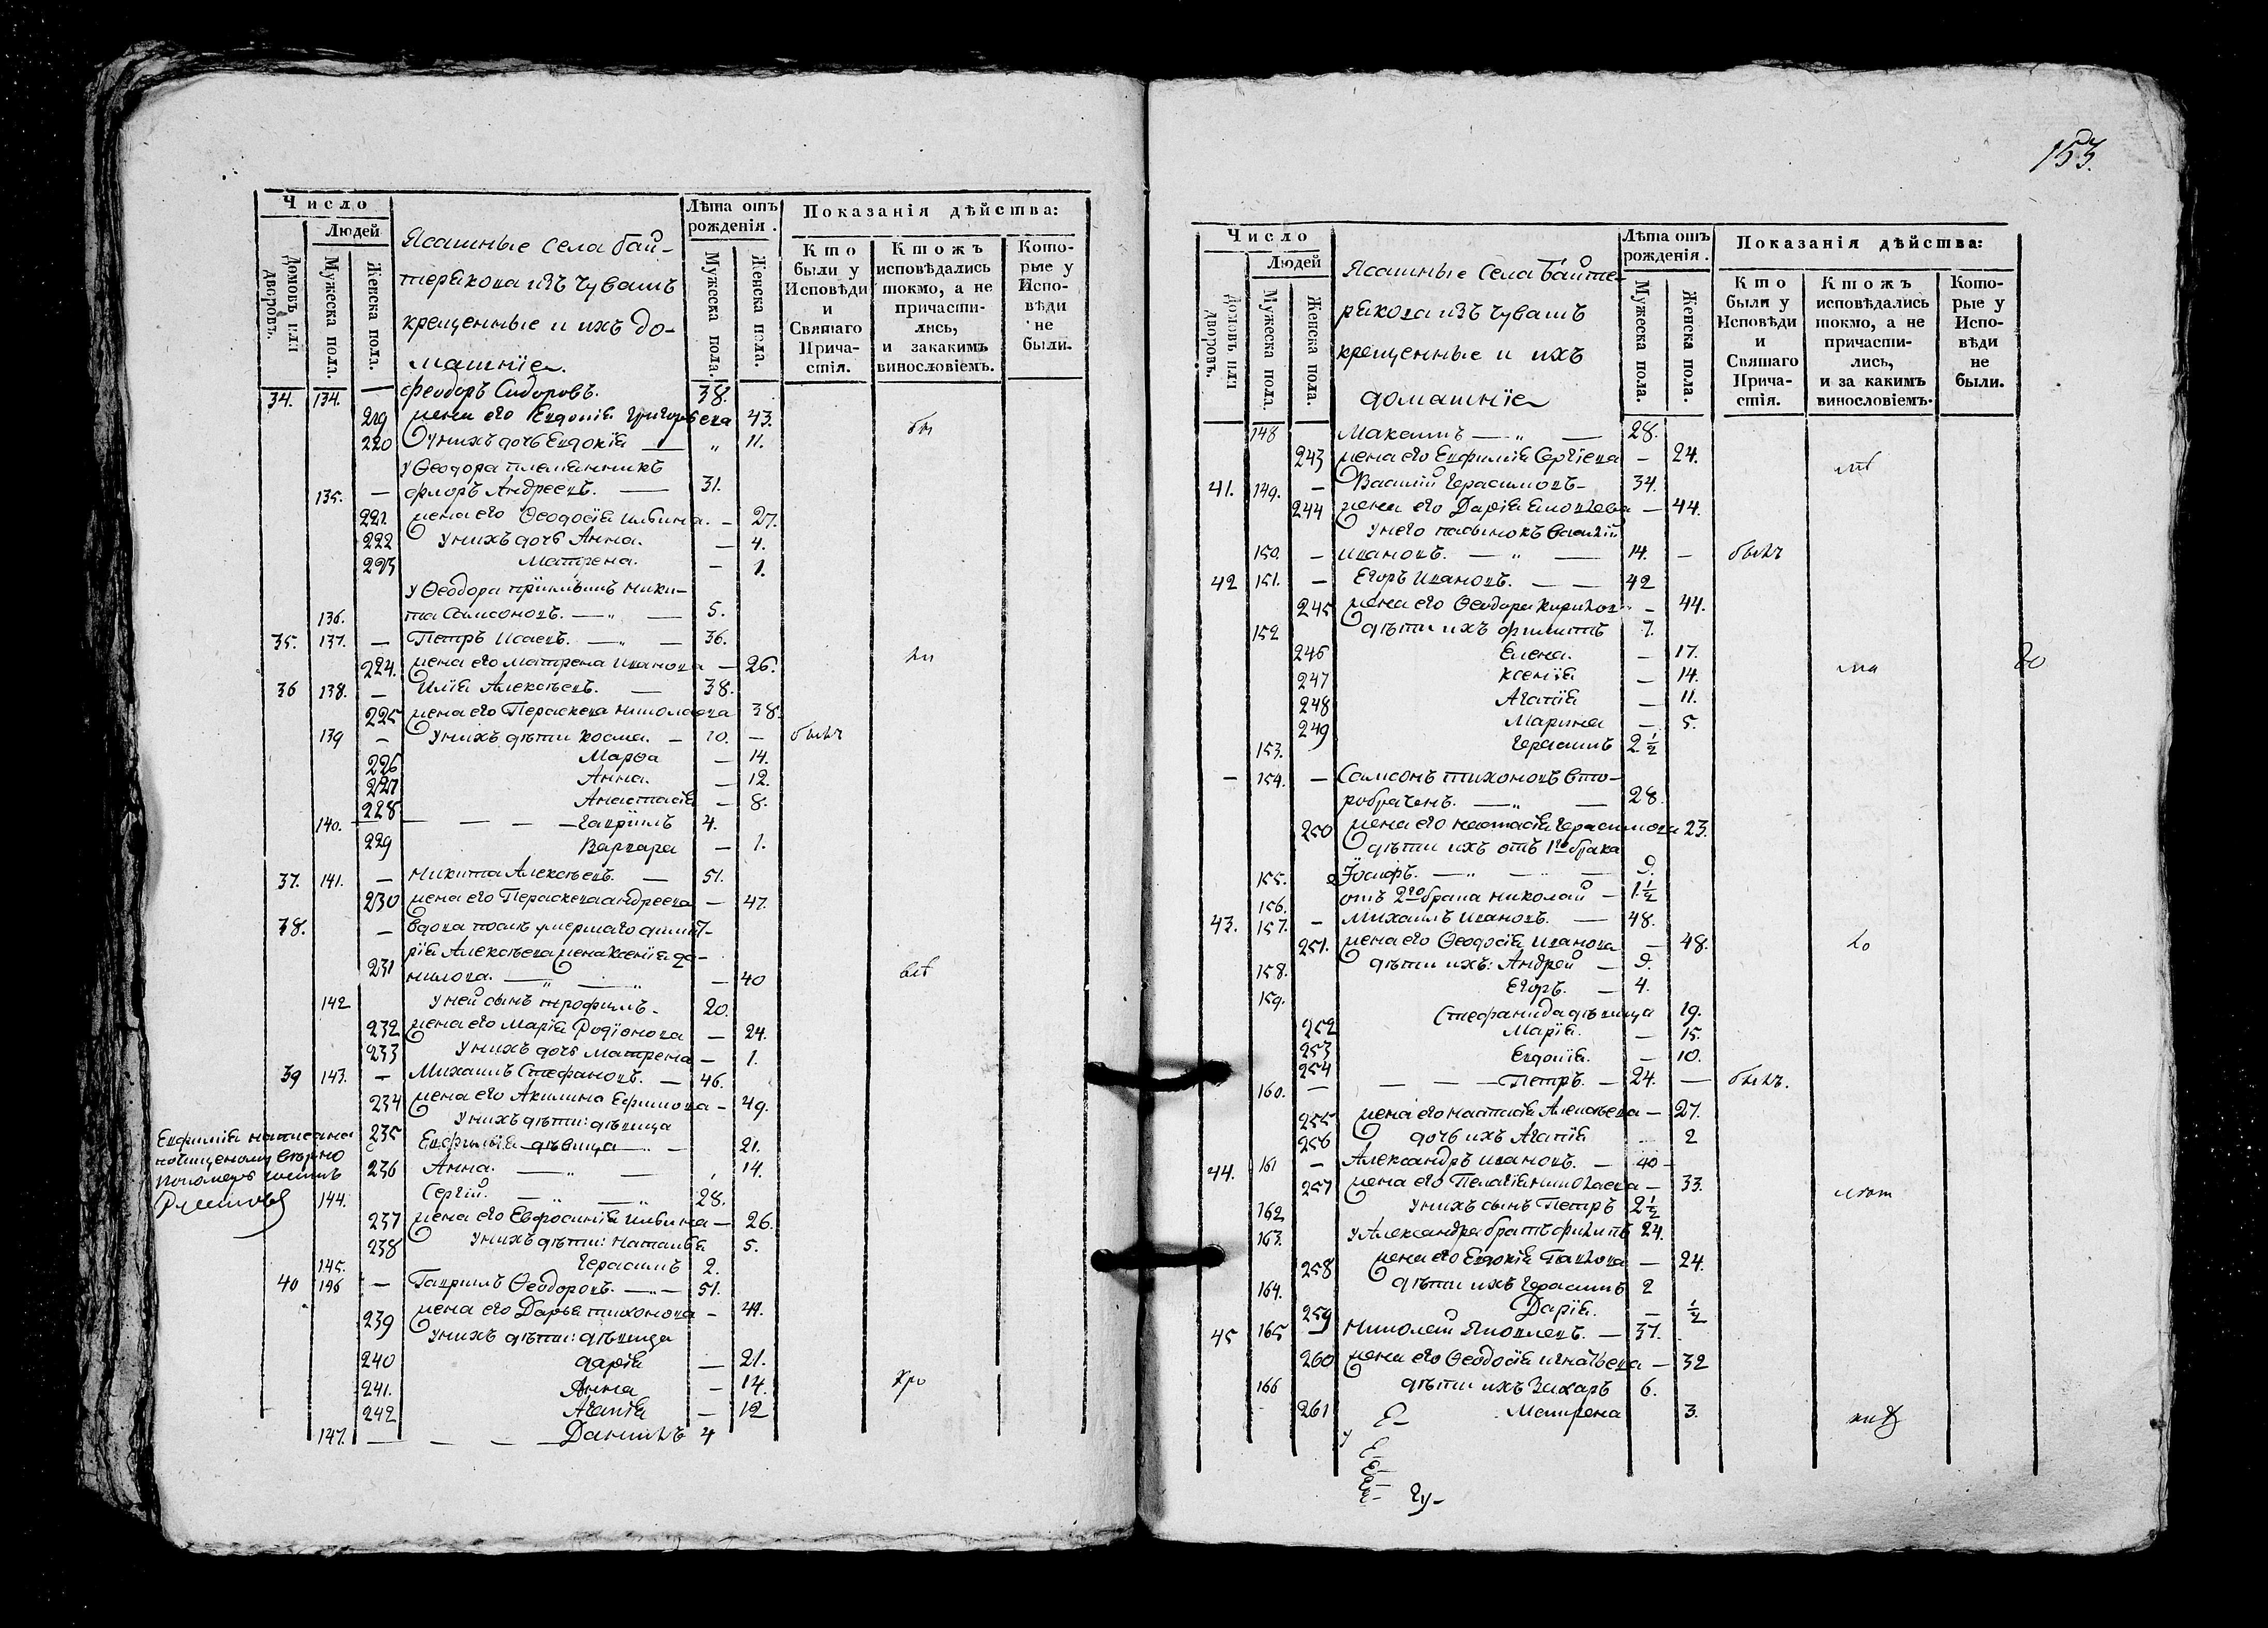 Число
Людей
Домовъ или дворовъ.
Мужеска пола.
Женска пола.
Ясашные села бай-
терякова изъ чувашъ
крещенные и ихъ до-
машніе.
Лѣта отъ рожденія.
Мужеска пола.
Женска пола.
Показанія дѣйства:
Кто были у Исповѣди и Святаго Причастія.
Ктожъ исповѣдались токмо, а не причастились, и закакимъ винословіемъ.
Которые у Исповѣди не были.
34. 134. — Феодоръ Сидоровъ. 38.
219 жена его Евдокія Григорьева 43.
220 у нихъ дочь Евдокія — „ 11.
у Ѳеодора племянникъ
135. — Флоръ Андреевъ. — 31.
221 жена его Ѳеодосія Ильина. — 27.
222 у нихъ дочь Анна. — 4.
223 Матрена. — 1.
у Ѳеодора пріимышъ Ники-
136. та Самсоновъ. — „ — 5.
35. 137. — Петръ Исаевъ. — „ — 36.
224. жена его Матрена Иванова — 26.
36 138. — Илія Алексѣевъ. — 38.
225 жена его Параскева Николаева 38.
139 — у нихъ дѣти Косма. — 10. — былъ
226 Марѳа — 14.
227 Анна. — 12.
228 Анастасія — 8.
140. — — — — Гавріилъ 4.
229 Варвара — 1.
37. 141. — Никита Алексѣевъ. — 51.
230 жена его Параскева Андреева — 47.
38. — вдова послѣ умершаго Дмит-
рія Алексѣева жена Ксенія Да-
231 нилова. — „ — „ — 40
142 у ней сынъ Трофимъ. 20.
232 жена его Марія Родіонова — 24.
233 у нихъ дочь Матрена — 1.
39 143. — Михаилъ Стефановъ. — 46.
234 жена его Акилина Ефимова — 49.
у нихъ дѣти: дѣвица
235 Евфимія дѣвица — 21.
Евфимія написана
236 Анна. — „ — 14.
144. Сергій. — „ — „ 28.
237 жена его Евфросинія Ильина — 26.
238 у нихъ дѣти: Наталья 5.
145. Герасимъ 2.
40 146 — Гавриилъ Ѳеодоровъ. — „ — 51.
239 жена его Дарья Тихонова — 44.
у нихъ дѣти: дѣвица
240 Дарія — 21.
241. Анна — 14.
242 Агапія — 12
147. — — — — Даниилъ 4
153.
Число
Людей
Домовъ или дворовъ.
Мужеска пола.
Женска пола.
Ясашные села Байте-
рякова изъ чувашъ
крещенные и ихъ
домашніе
Лѣта отъ рожденія.
Мужеска пола.
Женска пола.
Показанія дѣйства:
Кто были у Исповѣди и Святаго Причастія.
Ктожъ исповѣдались токмо, а не причастились, и за какимъ винословіемъ.
Которые у Исповѣди не были.
148 Максимъ — „ — 28.
243 жена его Евфимія Сергіева — 24.
41. 149. — Василій Герасимовъ — 34.
244 жена его Дарія Яковлева — 44.
у него пасынокъ Василій
150. — Ивановъ. — „ — 14. — былъ
42 151. — Егоръ Ивановъ. — — 42
245 жена его Ѳеодора Кирилова — 44.
152 дѣти ихъ Филиппъ 7.
246 Елена. — 17.
247 Ксенія — 14.
248 Агапія — 11.
249 Марина — 5.
153. Герасимъ 2 ½
— 154. — Самсонъ Тихоновъ вто-
робраченъ. — „ — 28.
250 жена его Настасія Герасимова 23.
дѣти ихъ отъ 1го брака
155. Іосифъ. — „ — „ — 9.
156. отъ 2го брака Николай — 1 ½
43. 157. — Михаилъ Ивановъ. — 48.
251. жена его Ѳеодосія Иванова — 48.
158. дѣти ихъ: Андрей — 9.
159. Егоръ. — 4.
252 Стефанида дѣвица 19.
253 Марія. — 15.
254 Евдокія. — 10.
160. — — — — Петръ. — 24. — былъ.
255 жена его Настасія Алексѣева — 27.
256 дочь ихъ Агапія 2
44. 161 — Александръ Ивановъ. — 40 —
257 жена его Пелагія Николаева — 33.
162 у нихъ сынъ Петръ 2 ½
163. у Александра братъ Филипъ 24.
258 жена его Евдокія Павлова — 24.
164. дѣти ихъ Герасимъ 2
259 Дарія. — ½
45 165 — Николай Яковлевъ. — 37.
260 жена его Ѳеодосія Игнатьева — 32
166 дѣти ихъ Захаръ 6.
261 Матрена 3.